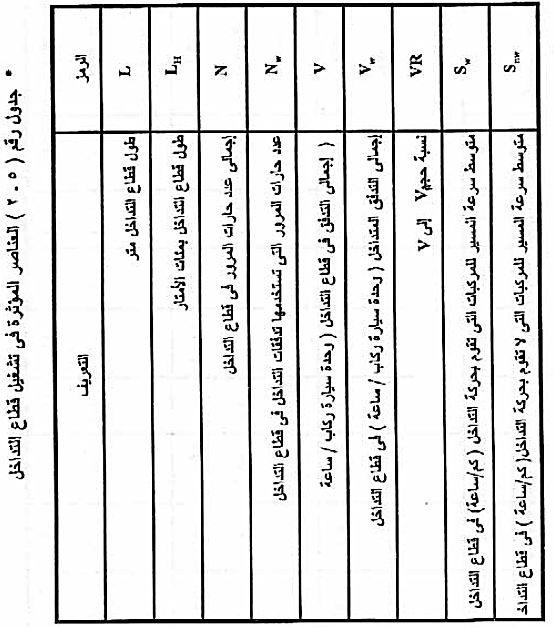 • جدول رقم ( ٥ - ٢ ) العناصر المؤثرة فى تشغيل قطاع التداخل
الرمز التعريف
L طول قطاع التداخل متر
L_H طول قطاع التداخل بمئات الأمتار
N إجمالى عدد حارات المرور فى قطاع التداخل
N_w عدد حارات المرور التى تستخدمها تدفقات التداخل فى قطاع التداخل
V ( إجمالى التدفق فى قطاع التداخل ( وحدة سيارة ركاب / ساعة
V_w إجمالى التدفق المتداخل ( وحدة سيارة ركاب / ساعة ) فى قطاع التداخل
VR نسبة حجم V_w إلى V
S_w متوسط سرعة المسير للمركبات التى تقوم بحركة التداخل ( كم/ساعة) فى قطاع التداخل
S_nw متوسط سرعة المسير للمركبات التى لا تقوم بحركة التداخل( كم/ساعة ) فى قطاع التداخ